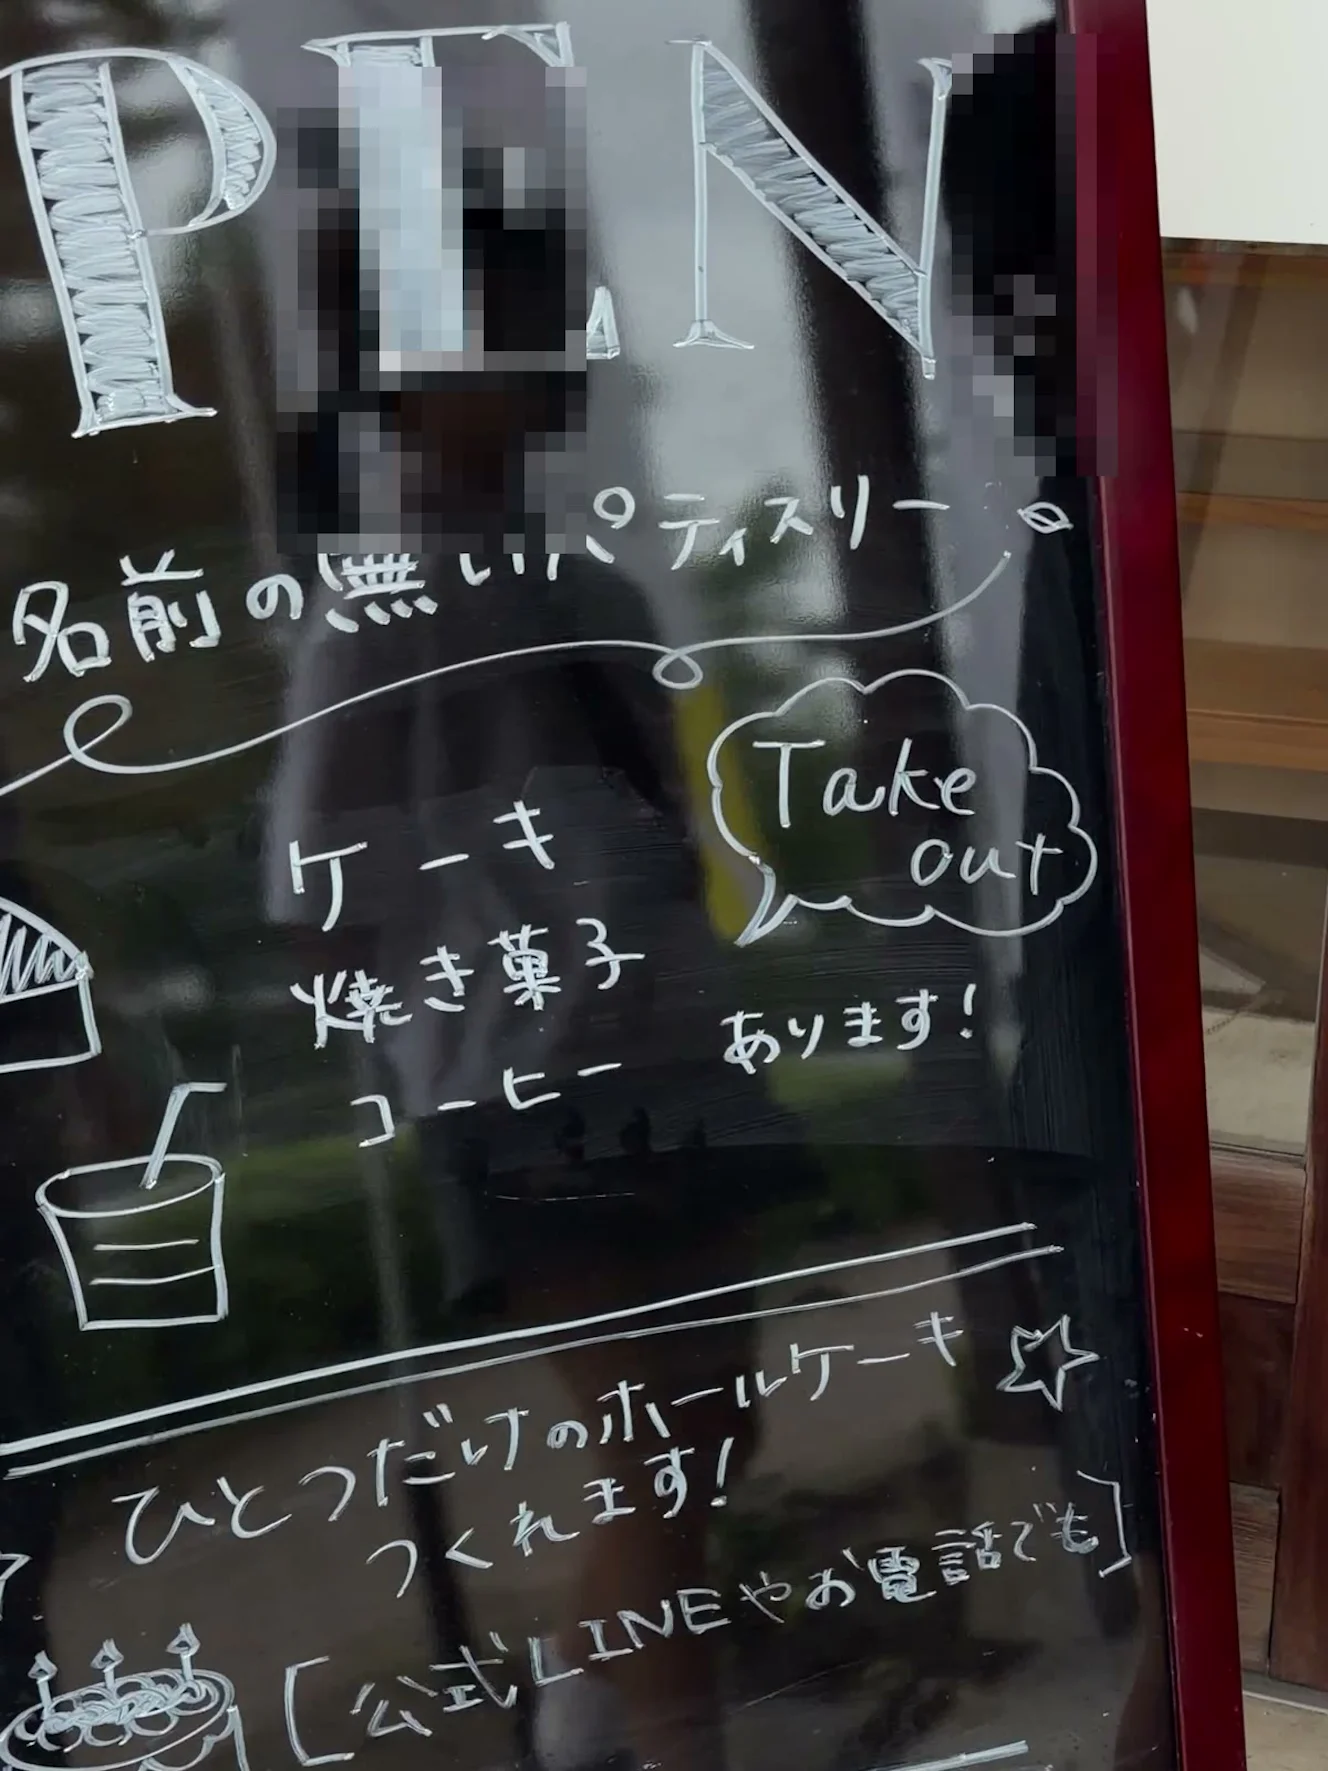 PEN
名前の無いパティスリー
Take
out
ケーキ
焼き菓子
コーヒー
あります!
ひとつだけのホールケーキ
つくれます!
[公式LINEやお電話でも]